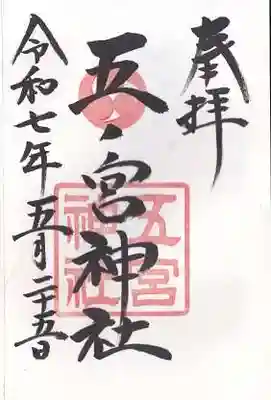 奉拝
五ノ宮神社
五宮
神社
令和七年五月二十五日